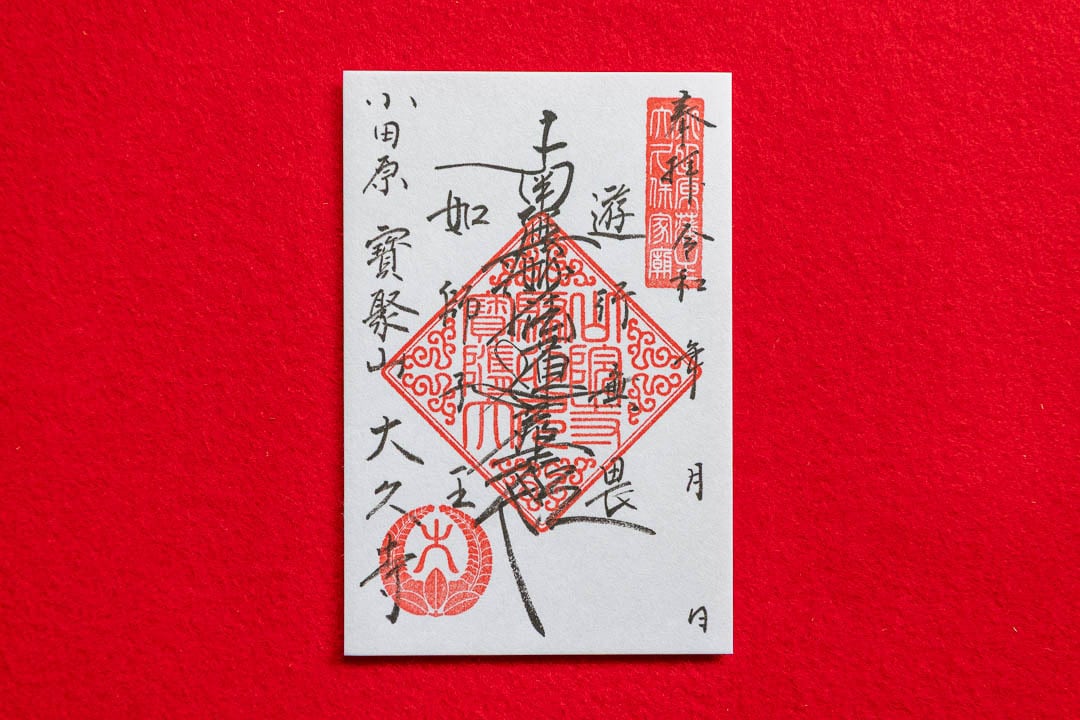 奉拝 令和 年 月 日
遊行無畏
南無妙法蓮華経
如師子王
小田原 寶聚山 大久寺
大久保家廟
大